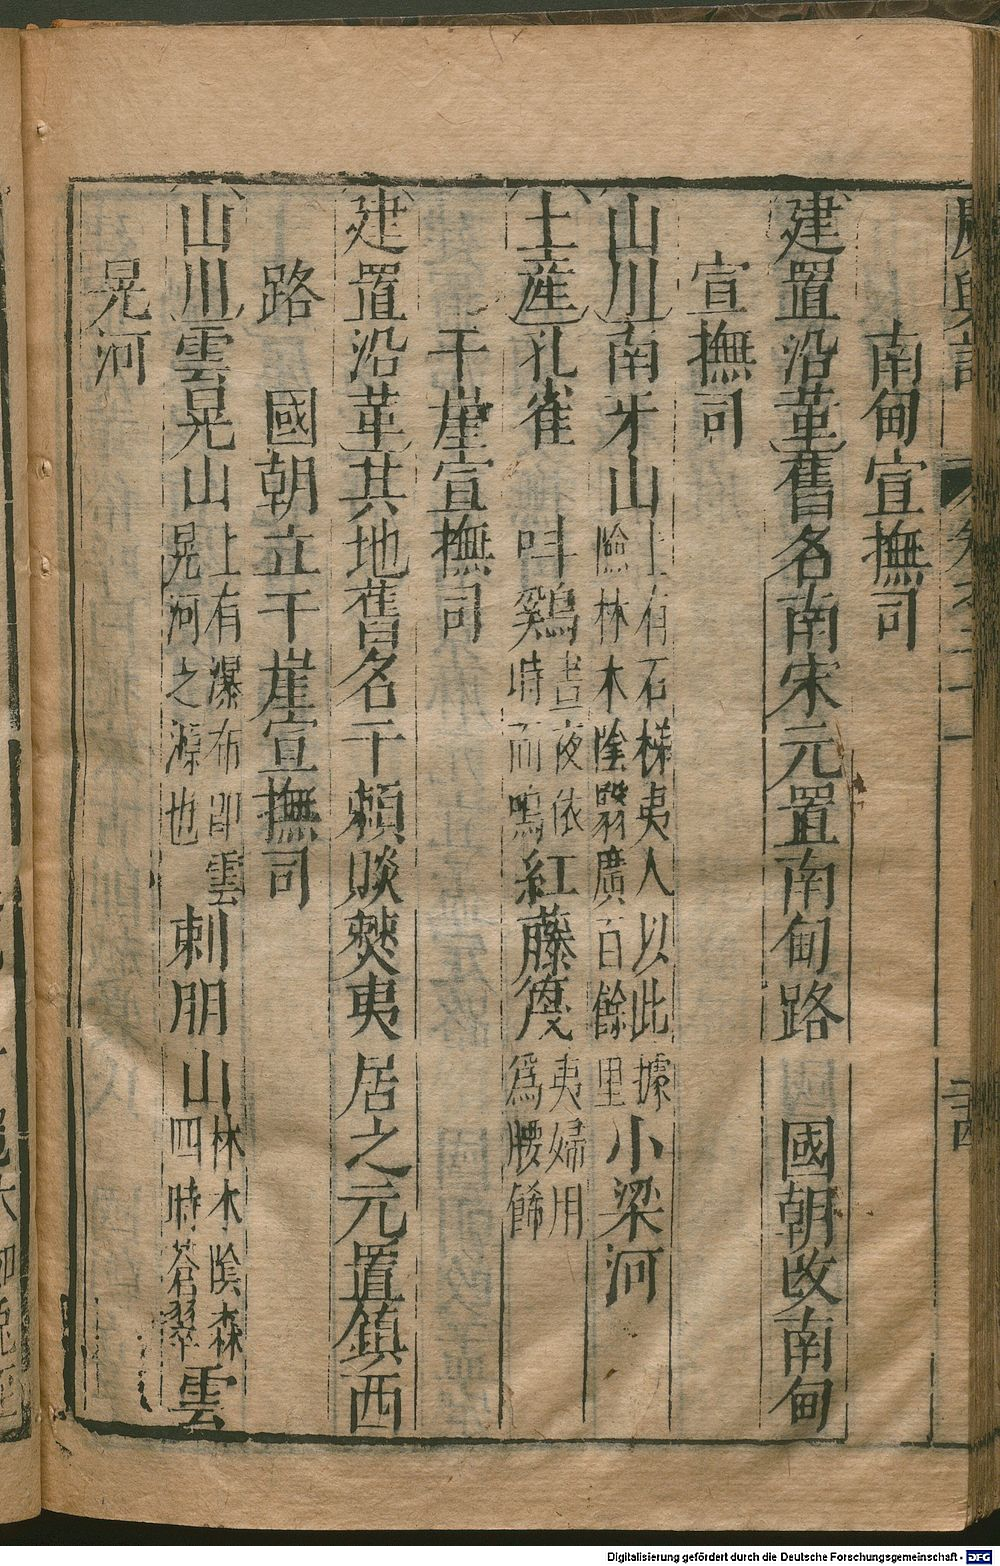 南甸宣撫司
建置沿革舊名南宋元置南甸路 國朝改南甸
宣撫司
山川南牙山上有石梯夷人以此據險林木陰翳廣百餘里小梁河
土産孔雀 叫鷄晝夜依時而鳴紅藤篾夷婦用爲腰餙
干崖宣撫司
建置沿革其地舊名干賴賧僰夷居之元置鎮西
路 國朝立干崖宣撫司
山川雲晃山上有瀑布卽雲晃河之源也刺朋山林木陰森四時蒼翠雲
晃河
Digitalisierung gefördert durch die Deutsche Forschungsgemeinschaft - DFG